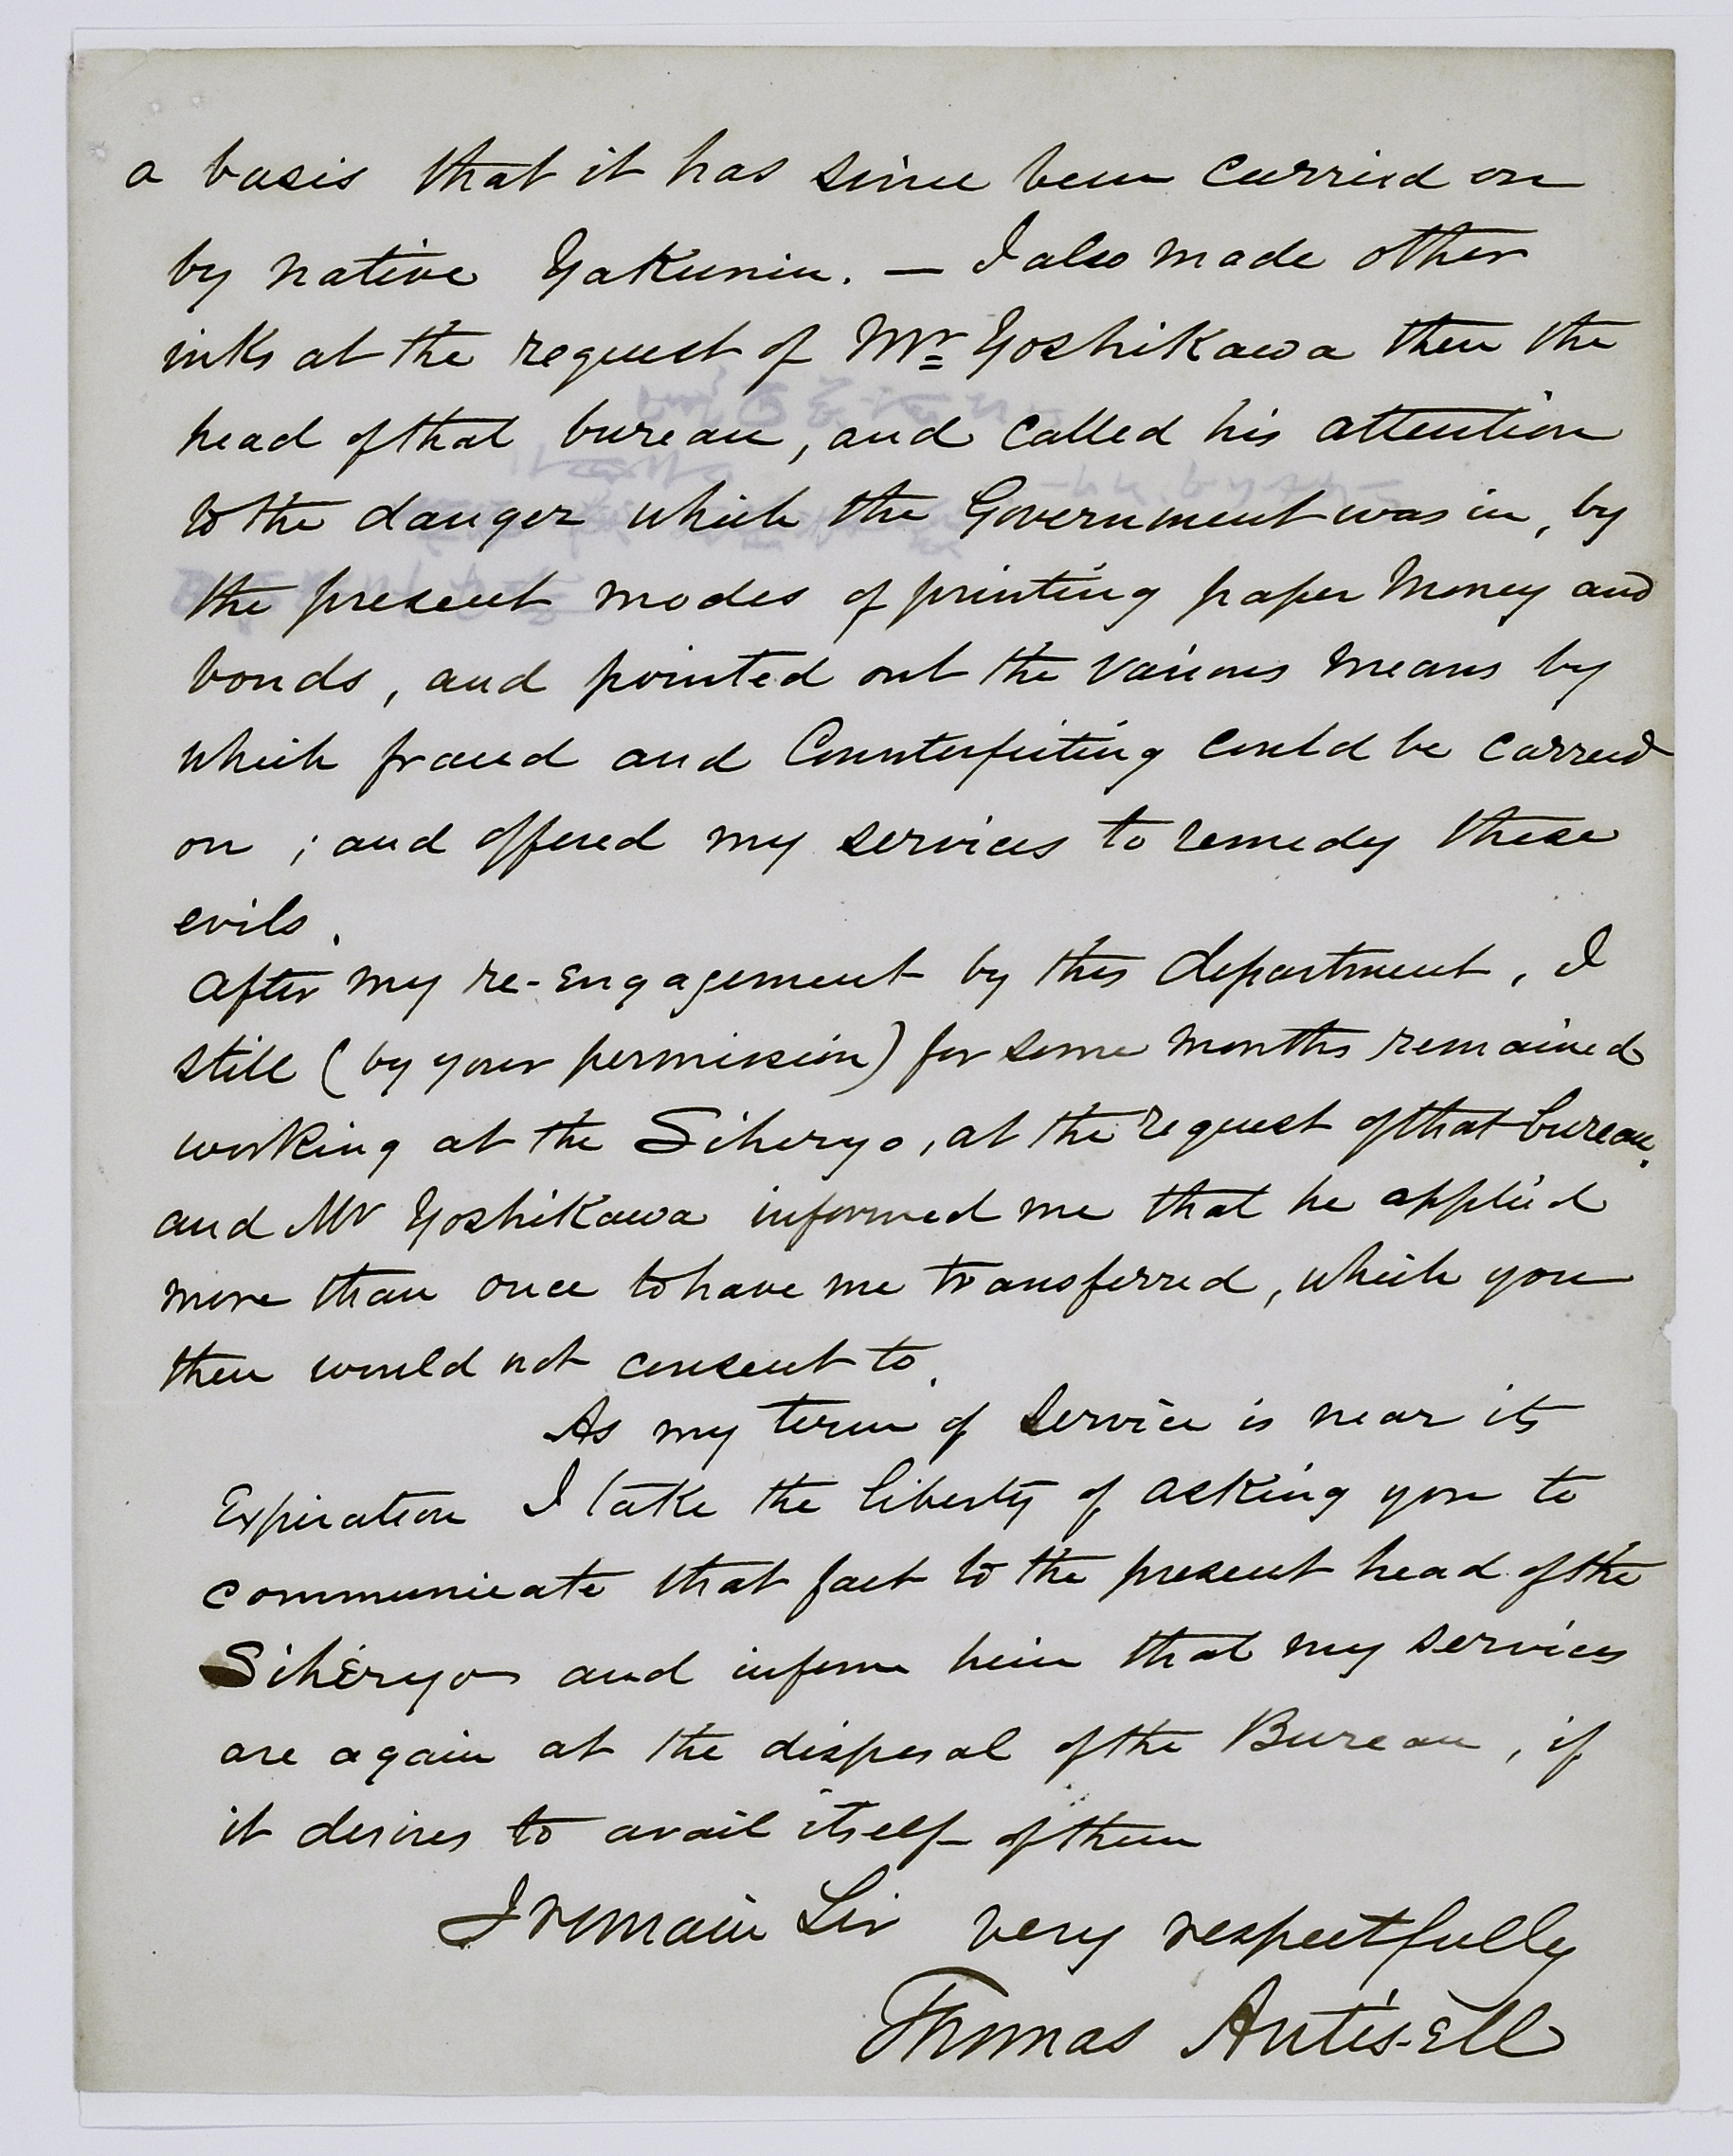 a basis that it has since been carried on
by native Yakunin. — I also made other
inks at the request of Mr Yoshikawa then the
head of that bureau, and called his attention
to the danger which the Government was in, by
the present modes of printing paper money and
bonds, and pointed out the various means by
which fraud and Counterfeiting could be carried
on ; and offered my services to remedy these
evils.
After my re-engagement by this department, I
still (by your permission) for some months remained
working at the Siheryo, at the request of that bureau.
and Mr Yoshikawa informed me that he applied
more than once to have me transferred, which you
then would not consent to.
As my term of service is near its
Expiration I take the liberty of asking you to
communicate that fact to the present head of the
Siheryo and inform him that my services
are again at the disposal of the Bureau, if
it desires to avail itself of them
I remain Sir very respectfully
Thomas Antisell